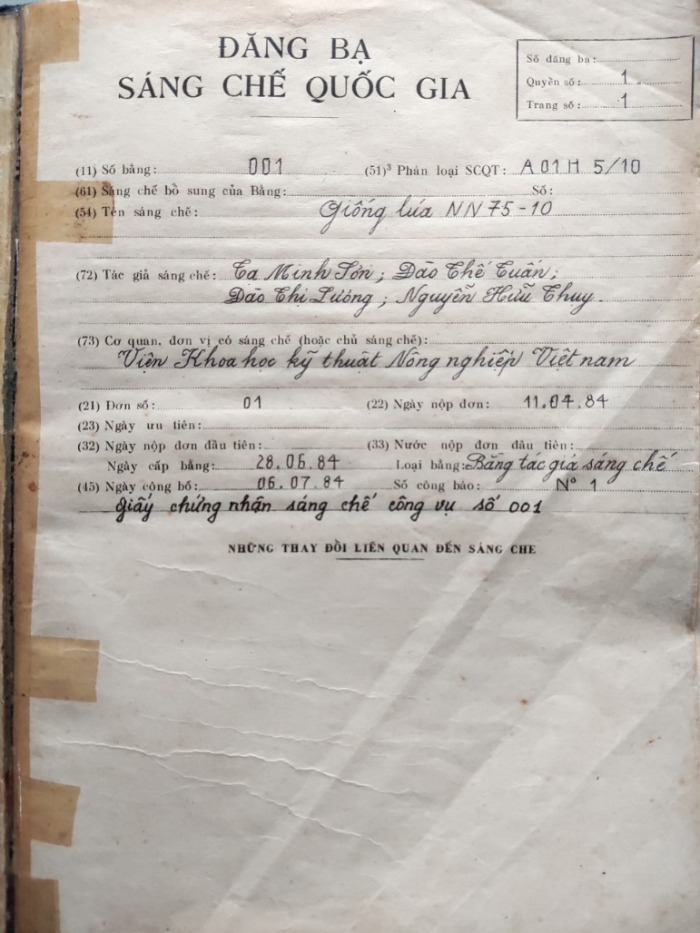 ĐĂNG BẠ
SÁNG CHẾ QUỐC GIA
Số đăng bạ:
Quyền số: 1
Trang số: 1
(11) Số bằng: 001 (51)³ Phân loại SCQT: A 01 H 5/10
(61) Sáng chế bổ sung của Bằng: Số:
(54) Tên sáng chế: Giống lúa NN75-10
(72) Tác giả sáng chế: Tạ Minh Sơn; Đào Thế Tuấn;
Đào Thị Lương; Nguyễn Hữu Thuy.
(73) Cơ quan, đơn vị có sáng chế (hoặc chủ sáng chế):
Viện Khoa học kỹ thuật Nông nghiệp Việt nam
(21) Đơn số: 01 (22) Ngày nộp đơn: 11.04.84
(23) Ngày ưu tiên:
(32) Ngày nộp đơn đầu tiên: (33) Nước nộp đơn đầu tiên:
Ngày cấp bằng: 28.06.84 Loại bằng: Bằng tác giả sáng chế
(45) Ngày công bố: 06.07.84 Số công báo: Nº 1
Giấy chứng nhận sáng chế công vụ số 001
NHỮNG THAY ĐỔI LIÊN QUAN ĐẾN SÁNG CHẾ